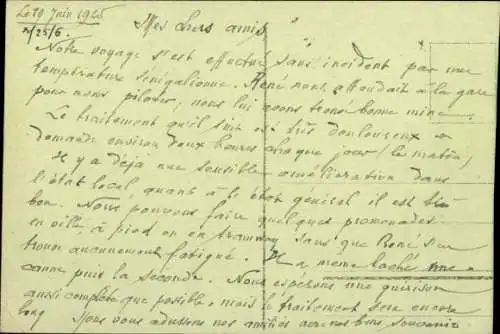 Le 19 Juin 1925
2/25/6.
Mes chers amis
Notre voyage s'est effectué sans incident par une
température sénégalienne. René nous attendait à la gare
pour nous piloter; nous lui avons trouvé bonne mine.
Le traitement qu'il suit est très douloureux et
demande environ deux heures chaque jour (le matin)
Il y a déjà une sensible amélioration dans
l'état local, quant à l'état général il est très
bon. Nous pouvons faire quelques promenades
en ville à pied ou en tramway sans que René s'en
trouve aucunement fatigué. Il a meme laché une
canne puis la seconde. Nous espérons une guérison
aussi complète que possible, mais le traitement sera encore
long Nous vous adressons nos amitiés avec nos bons souvenirs